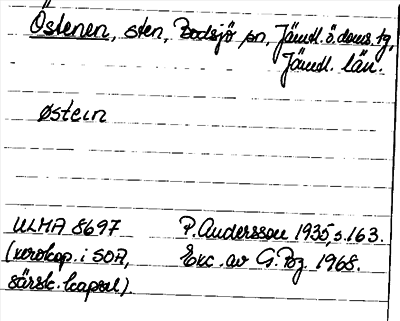 Östenen, sten, Bodsjö sn, Jämtl. ö. doms. tg,
Jämtl. län.
østein
ULMA 8697 P. Andersson 1935, s. 163.
(xerokop. i SOA, Exc. av G. Poz. 1968.
särsk. kapsel).